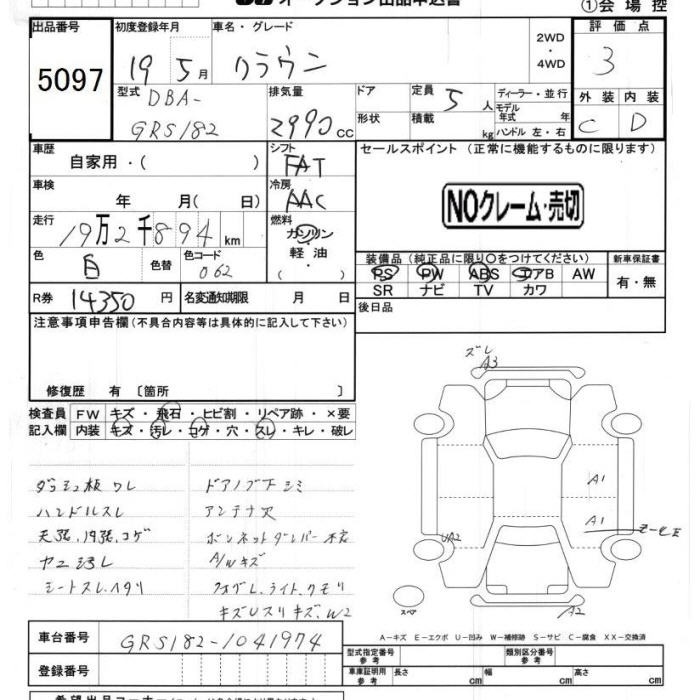 オークション出品申込書
①会場控
出品番号
5097
初度登録年月
19 5月
車名・グレード
クラウン
2WD
・
4WD
評価点
3
型式
DBA-
GRS182
排気量
2990cc
ドア
形状
定員 5人
積載 kg
ディーラー・並行
モデル
年式 年
ハンドル 左・右
外装 内装
C D
車歴
自家用・( )
シフト
FAT
セールスポイント (正常に機能するものに限ります)
NOクレーム・売切
車検
年 月( 日)
冷房
AAC
走行
19万2千894km
燃料
ガソリン
・
軽油
・
色
白
色替
色コード
062
装備品(純正品に限り○をつけてください)
PS PW ABS エアB AW
SR ナビ TV カワ
新車保証書
有・無
R券 14350円
名変通知期限 月 日
後日品
注意事項申告欄(不具合内容等は具体的に記入して下さい)
修復歴 有 〔箇所 〕
検査員
記入欄
FW キズ・飛石・ヒビ割・リペア跡・×要
内装 キズ・汚レ・コゲ・穴・スレ・キレ・破レ
ダッシュ板ワレ
ハンドルスレ
天張、内張、コゲ
ヤニ汚レ
シートスレ、ヘタリ
ドアノブ下シミ
アンテナ欠
ボンネットダンパー不良
A/Wキズ
フォグ、ライト、クモリ
キズUスリキズ、W2
ズレ
A3
A1
A1
UA2
A2
スペア
A-キズ E-エクボ U-凹み W-補修跡 S-サビ C-腐食 XX-交換済
車台番号
GRS182-1041974
登録番号
型式指定番号
参考
類別区分番号
参考
車庫証明用
参考
長さ
幅
高さ
cm
cm
cm